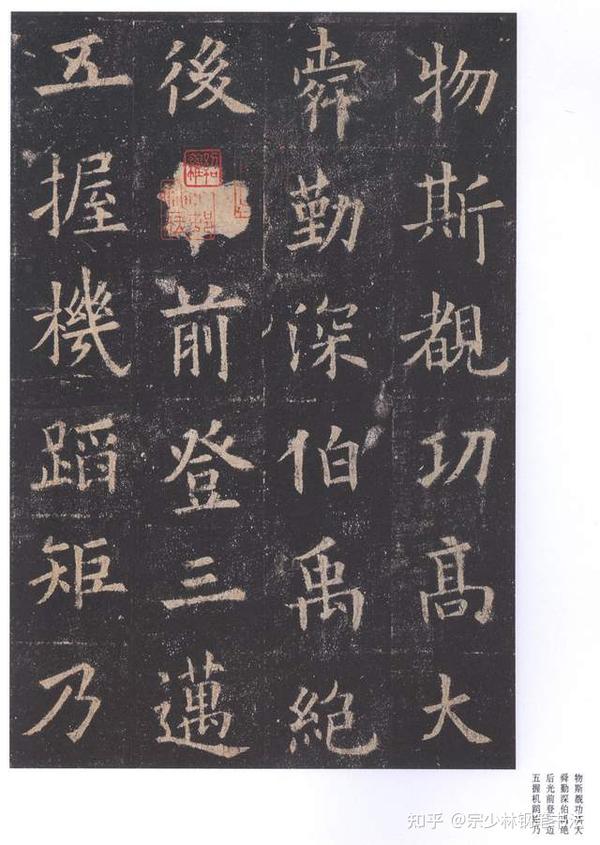 物斯覩功高大
舜勤深伯禹絕
後前登三邁
五握機蹈矩乃
物斯覩功高大
舜勤深伯禹绝
后光前登三迈
五握机蹈矩乃
知乎 @宗少林钢笔书法